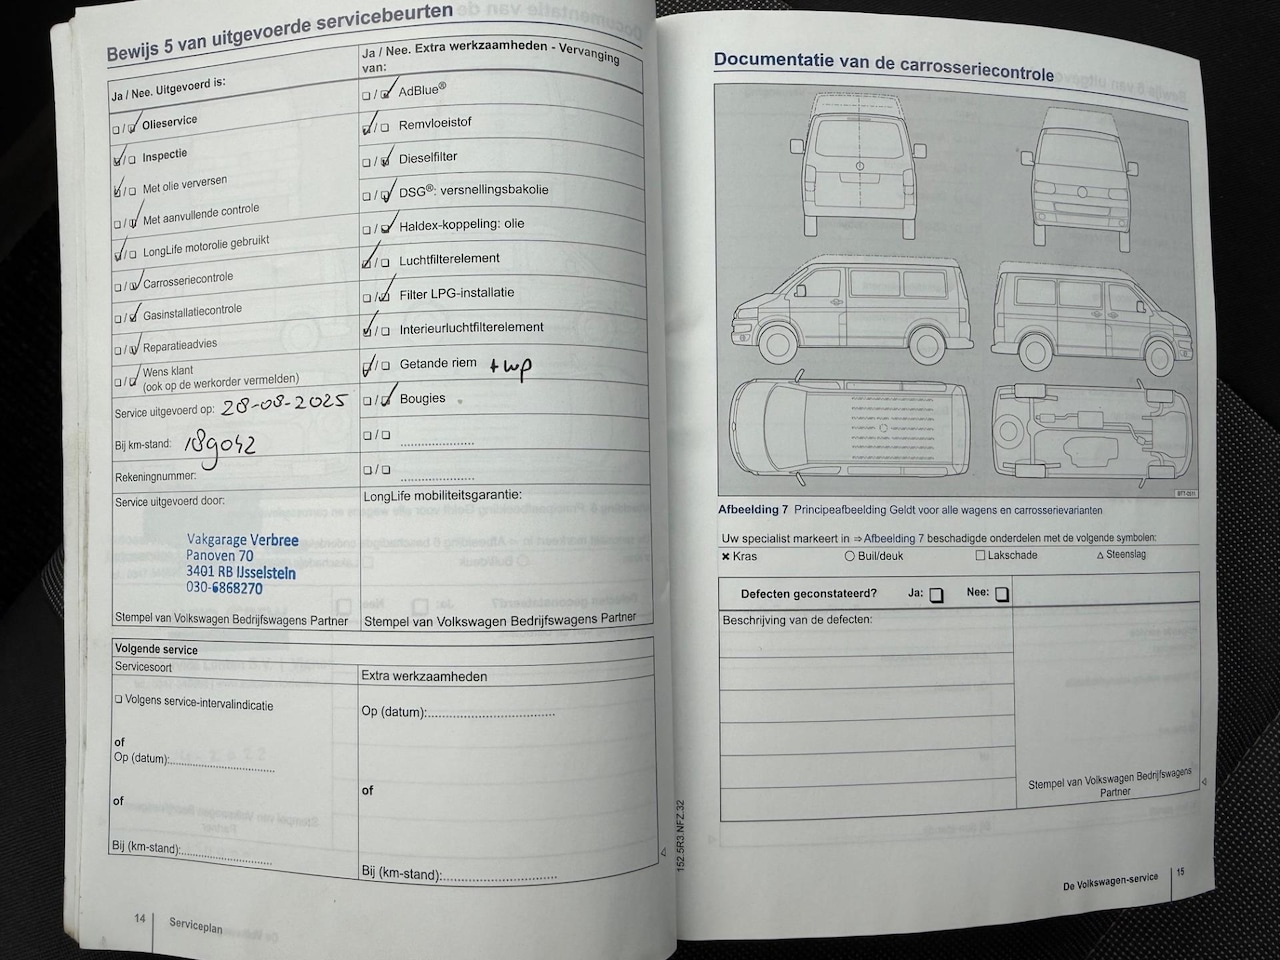 Bewijs 5 van uitgevoerde servicebeurten
Ja / Nee. Uitgevoerd is:
Olieservice
Inspectie
Met olie verversen
Met aanvullende controle
LongLife motorolie gebruikt
Carrosseriecontrole
Gasinstallatiecontrole
Reparatieadvies
Wens klant
(ook op de werkorder vermelden)
Service uitgevoerd op: 28-08-2025
Bij km-stand: 189042
Rekeningnummer:
Service uitgevoerd door:
Vakgarage Verbree
Panoven 70
3401 RB IJsselstein
030-6868270
Stempel van Volkswagen Bedrijfswagens Partner
Ja / Nee. Extra werkzaamheden - Vervanging
van:
AdBlue®
Remvloeistof
Dieselfilter
DSG®: versnellingsbakolie
Haldex-koppeling: olie
Luchtfilterelement
Filter LPG-installatie
Interieurluchtfilterelement
Getande riem + wp
Bougies
LongLife mobiliteitsgarantie:
Stempel van Volkswagen Bedrijfswagens Partner
Volgende service
Servicesoort
Volgens service-intervalindicatie
of
Op (datum):
of
Bij (km-stand):
Extra werkzaamheden
Op (datum):
of
Bij (km-stand):
14
Serviceplan
152.5R3.NFZ.32
Documentatie van de carrosseriecontrole
Afbeelding 7 Principeafbeelding Geldt voor alle wagens en carrosserievarianten
Uw specialist markeert in ⇒ Afbeelding 7 beschadigde onderdelen met de volgende symbolen:
✖ Kras ○ Buil/deuk □ Lakschade △ Steenslag
Defecten geconstateerd? Ja: Nee:
Beschrijving van de defecten:
Stempel van Volkswagen Bedrijfswagens
Partner
De Volkswagen-service
15